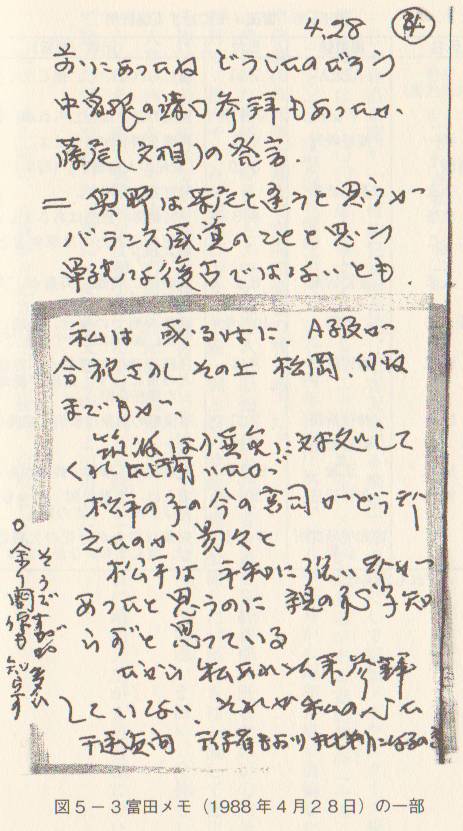 4.28 ④
前にあったね どうしたのだろう
中曽根の靖国参拝もあったか
藤尾(文相)の発言.
=奥野は藤尾と違うと思うが
バランス感覚のことと思う
単純な復古ではないとも.
私は 或る時に A級が
合祀され その上 松岡、白取
までもが、
筑波は慎重に対処して
くれたと聞いたが
松平の子の今の宮司がどう考
えたのか 易々と
松平は 平和に強い考が
あったと思うのに 親の心子知
らずと思っている
だから 私あれ以来参拝
していない、それが私の心だ
そうですがが多い
○余り閣僚も知らず
図5-3富田メモ(1988年4月28日)の一部